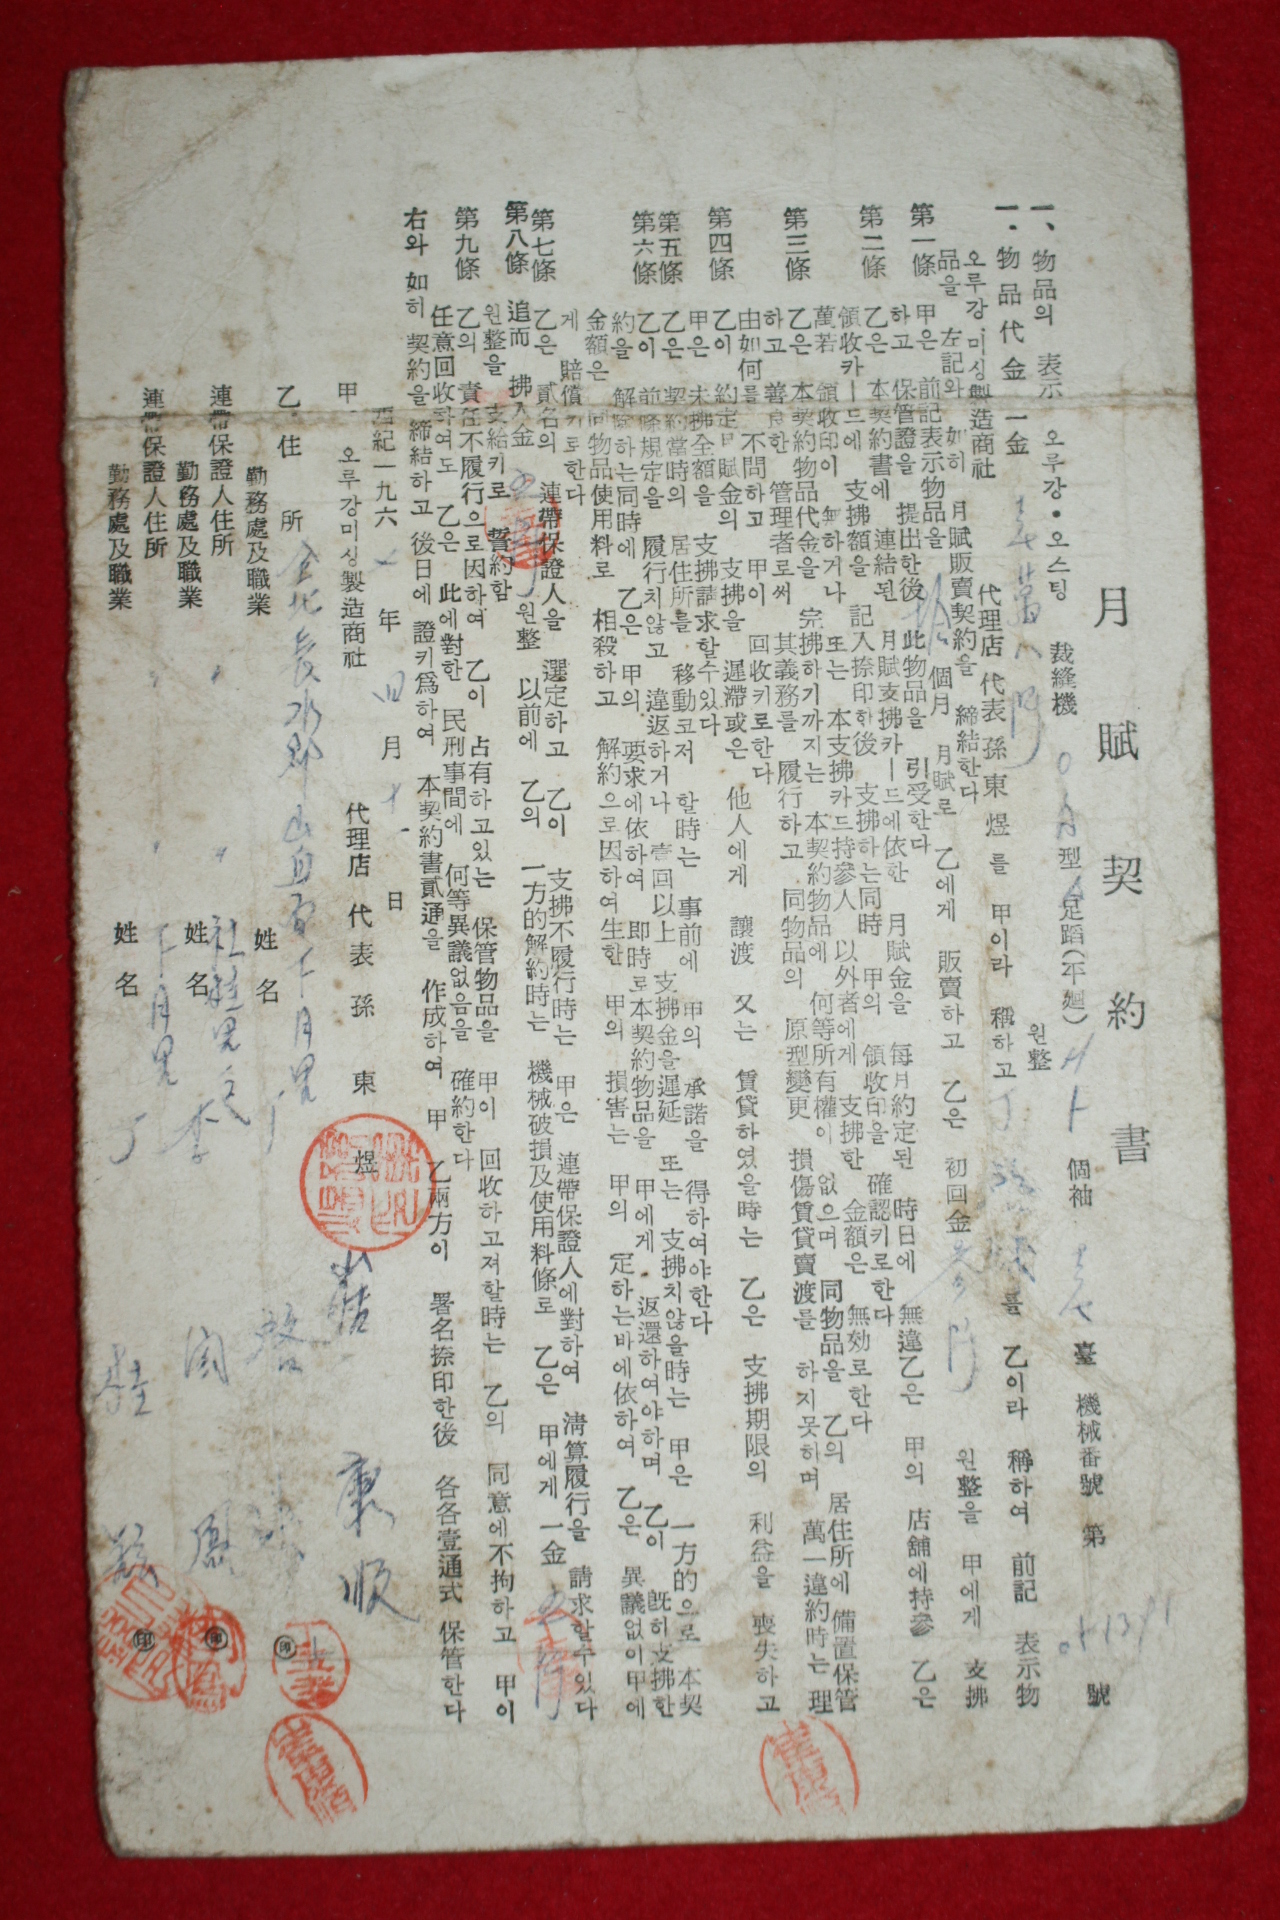 月賦契約書
一、物品의 表示 오루강・오스팅 裁縫機 型 足蹈(平廻) 個袖 臺 機械番號 第 號
一. 物品代金 一金 壹萬八阡 원整
오루강미싱製造商社 代理店 代表 孫東煜를 甲이라 稱하고 를 乙이라 稱하여 前記 表示物
品을 左記와 如히 月賦販賣契約을 締結한다
第一條 甲은 前記表示物品을 拾個月 月賦로 乙에게 販賣하고 乙은 初回金 원整을 甲에게 支拂
하고 保管證을 提出한後 此物品을 引受한다
第二條 乙은 本契約書에 連結된 月賦支拂카ー드에依한 月賦金을 每月約定된 時日에 無違乙은 甲의 店舖에持參 乙은
領收카ー드에 支拂額을 記入捺印한後 支拂하는同時 甲의 領收印을 確認키로한다
萬若 領收印이 無하거나 또는 本支拂카드持參人 以外者에게 支拂한 金額은 無効로한다
第三條 乙은 本契約物品代金을 完拂하기까지는 本契約物品에 何等所有權이 없으며 同物品을 乙의 居住所에 備置保管
하고 善良한 管理者로써 其義務를 履行하고 同物品의 原型變更 損傷賃貸賣渡를 하지못하며 萬一違約時는 理
由如何를 不問하고 甲이 回收키로한다
第四條 乙이 約定月賦金의 支拂을 遲滯或은 他人에게 讓渡 又는 賃貸하였을時는 乙은 支拂期限의 利益을 喪失하고
甲은 未拂全額을 支拂請求할수있다
第五條 乙은 契約當時의 居住所를 移動코저 할時는 事前에 甲의 承諾을 得하여야한다
第六條 乙이 前條規定을 履行치않고 違返하거나 壹回以上 支拂金을遲延 또는 支拂치않을時는 甲은 一方的으로 本契
約을 解除하는同時에 乙은 甲의 要求에依하여 卽時로本契約物品을 甲에게 返還하여야하며 乙이 旣히支拂한
金額은 同物品使用料로 相殺하고 解約으로因하여生한 甲의 損害는 甲의 定하는바에依하여 乙은 異議없이甲에
게 賠償키로한다
第七條 乙은 貳名의 連帶保證人을 選定하고 乙이 支拂不履行時는 甲은 連帶保證人에對하여 淸算履行을 請求할수있다
第八條 追而 拂入金 원整 以前에 乙의 一方的解約時는 機械破損及使用料條로 乙은 甲에게 一金
원整을 支給키로 誓約함
第九條 乙의 責任不履行으로因하여 乙이 占有하고있는 保管物品을 甲이 回收하고저할時는 乙의 同意에不拘하고 甲이
任意回收하여도 乙은 此에對한 民刑事間에 何等異議없음을 確約한다
右와 如히 契約을 締結하고 後日에 證키爲하여 本契約書貳通을 作成하여 甲 乙兩方이 署名捺印한後 各各壹通式 保管한다
西紀一九六 年 四月 十 日
甲. 오루강미싱製造商社 代理店 代表 孫東煜
乙. 住所 全北長水郡山西面
勤務處及職業 姓名 印
連帶保證人住所
勤務處及職業 姓名 印
連帶保證人住所
勤務處及職業 姓名 印